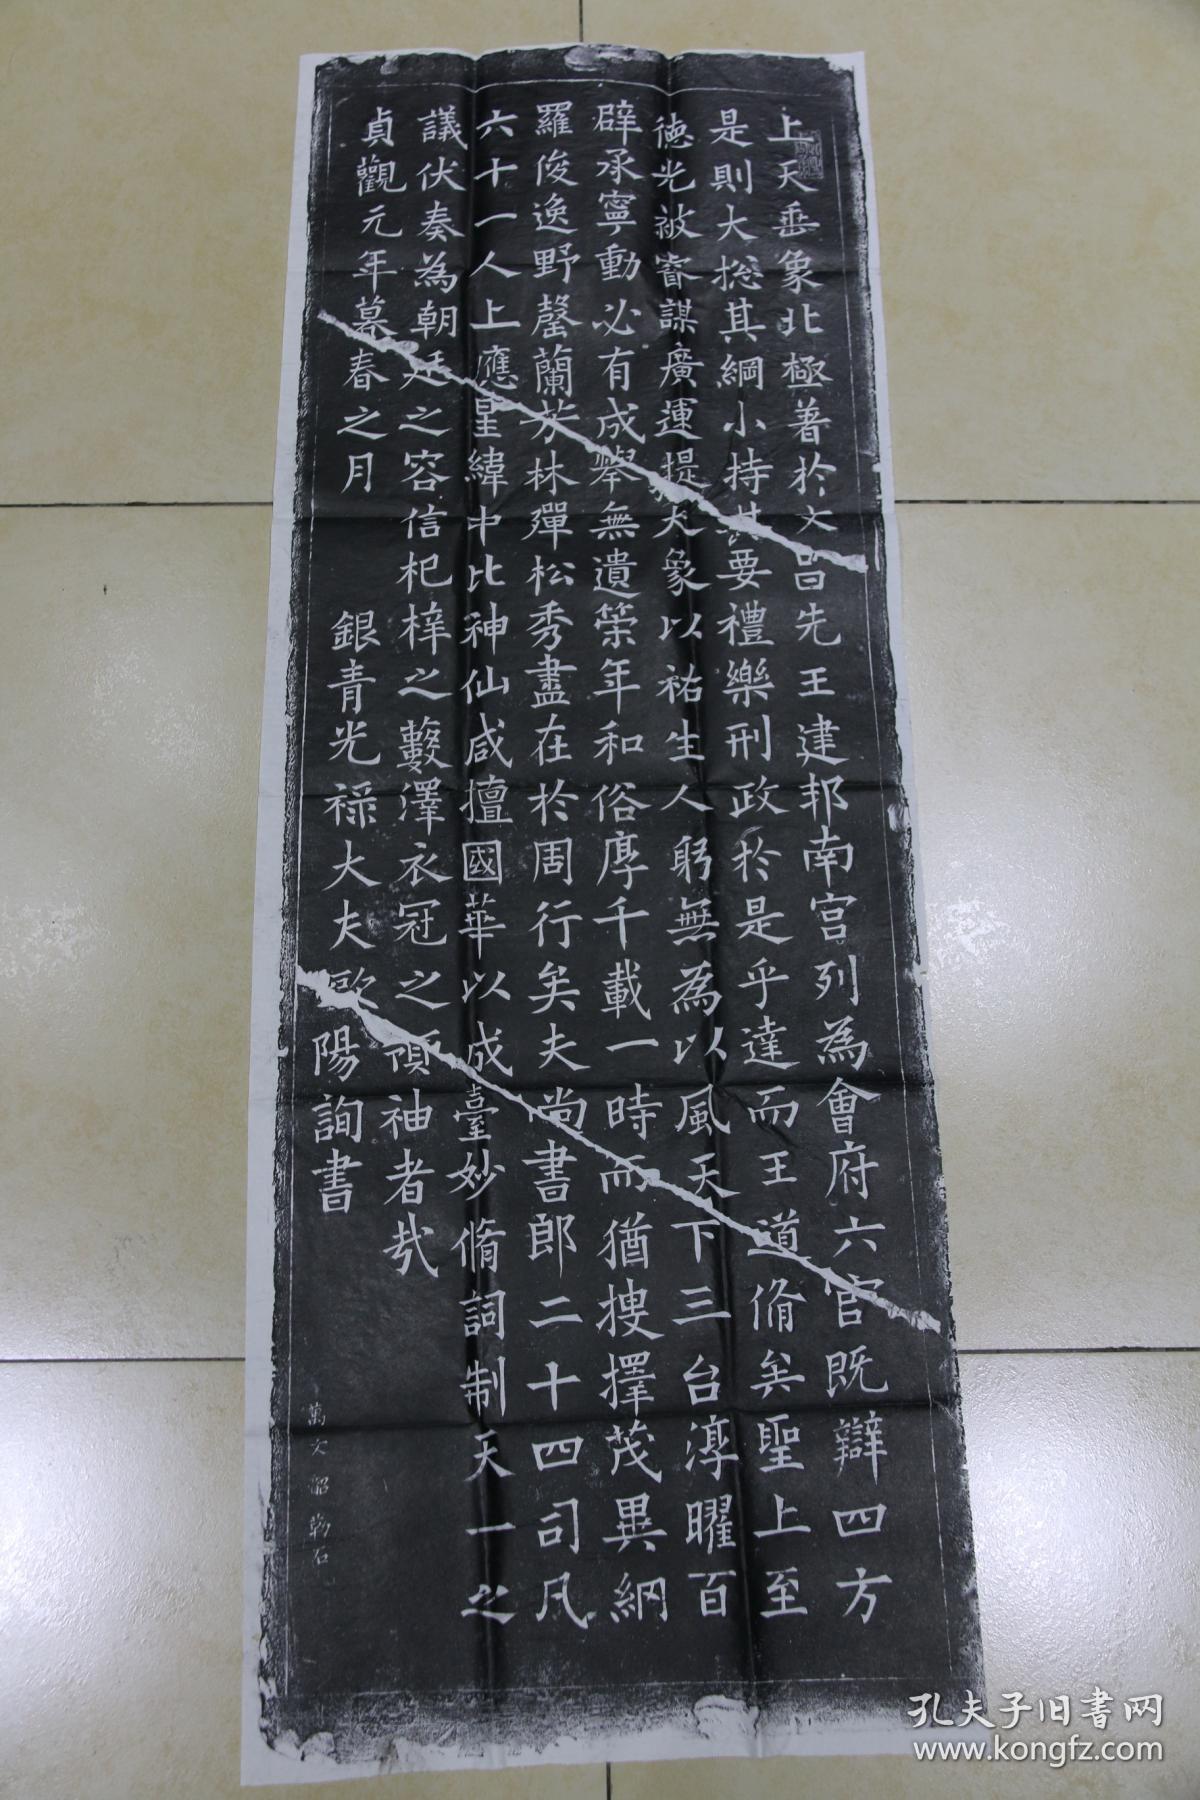 上天垂象北極著於文昌先王建邦南宮列為會府六官既辯四方
是則大捴其綱小持其要禮樂刑政於是乎達而王道脩矣聖上至
德光被睿謀廣運提大象以祐生人躬無為以風天下三台淳曜百
辟承寧動必有成舉無遺筞年和俗厚千載一時而猶搜擇茂異網
羅俊逸野罄蘭芳林殫松秀盡在於周行矣夫尚書郎二十四司凡
六十一人上應星緯中比神仙咸擅國華以成臺妙脩詞制天一之
議伏奏為朝廷之容信杞梓之藪澤衣冠之領袖者哉
貞觀元年暮春之月 銀青光祿大夫歐陽詢書
萬文韶勒石
孔夫子旧書网
www.kongfz.com